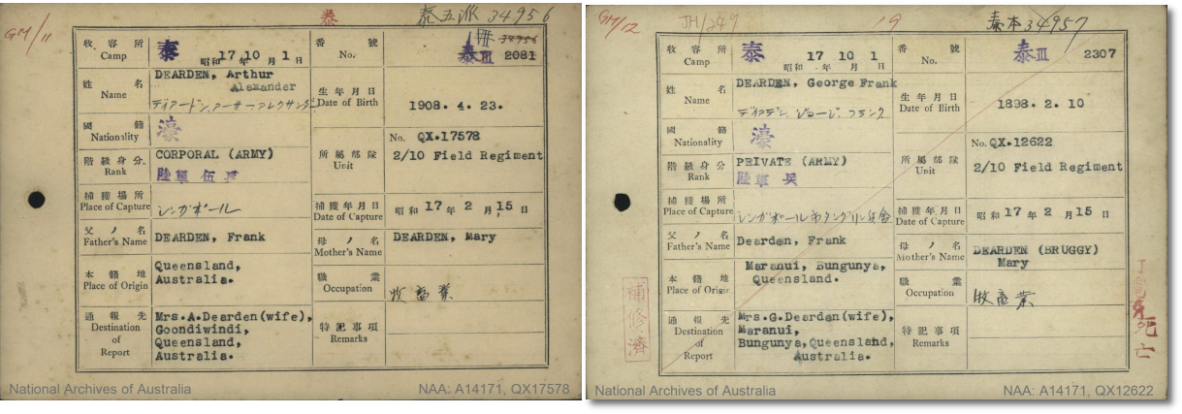 GM/11
泰
泰五派 34956
收容所
Camp
泰
昭和 17 年 10 月 1 日
番號
No.
34956
泰III 2081
姓名
Name
DEARDEN, Arthur
Alexander
ディアードン アーサー アレクサンダー
生年月日
Date of Birth
1908. 4. 23.
國籍
Nationality
濠
階級身分
Rank
CORPORAL (ARMY)
陸軍伍長
所屬部隊
Unit
No. QX.17578
2/10 Field Regiment
捕獲場所
Place of Capture
シンガポール
捕獲年月日
Date of Capture
昭和 17 年 2 月 15 日
父ノ名
Father's Name
DEARDEN, Frank
母ノ名
Mother's Name
DEARDEN, Mary
本籍地
Place of Origin
Queensland,
Australia.
職業
Occupation
牧畜業
通報先
Destination
of
Report
Mrs.A.Dearden(wife),
Goondiwindi,
Queensland,
Australia.
特記事項
Remarks
National Archives of Australia
NAA: A14171, QX17578
GM/12
JH/247
19
泰本34957
收容所
Camp
泰
昭和 17 年 10 月 1 日
番號
No.
泰III 2307
姓名
Name
DEARDEN, George Frank
ジョージ フランク
生年月日
Date of Birth
1898. 2. 10
國籍
Nationality
濠
階級身分
Rank
PRIVATE (ARMY)
陸軍兵
所屬部隊
Unit
No. QX.12622
2/10 Field Regiment
捕獲場所
Place of Capture
シンガポール市タングリン兵舎
捕獲年月日
Date of Capture
昭和 17 年 2 月 15 日
父ノ名
Father's Name
Dearden, Frank
母ノ名
Mother's Name
DEARDEN (BRUGGY)
Mary
本籍地
Place of Origin
Maranui, Bungunya,
Queensland.
職業
Occupation
牧畜業
通報先
Destination
of
Report
Mrs.G.Dearden(wife),
Maranui,
Bungunya,Queensland,
Australia.
特記事項
Remarks
補修濟
死亡
National Archives of Australia
NAA: A14171, QX12622